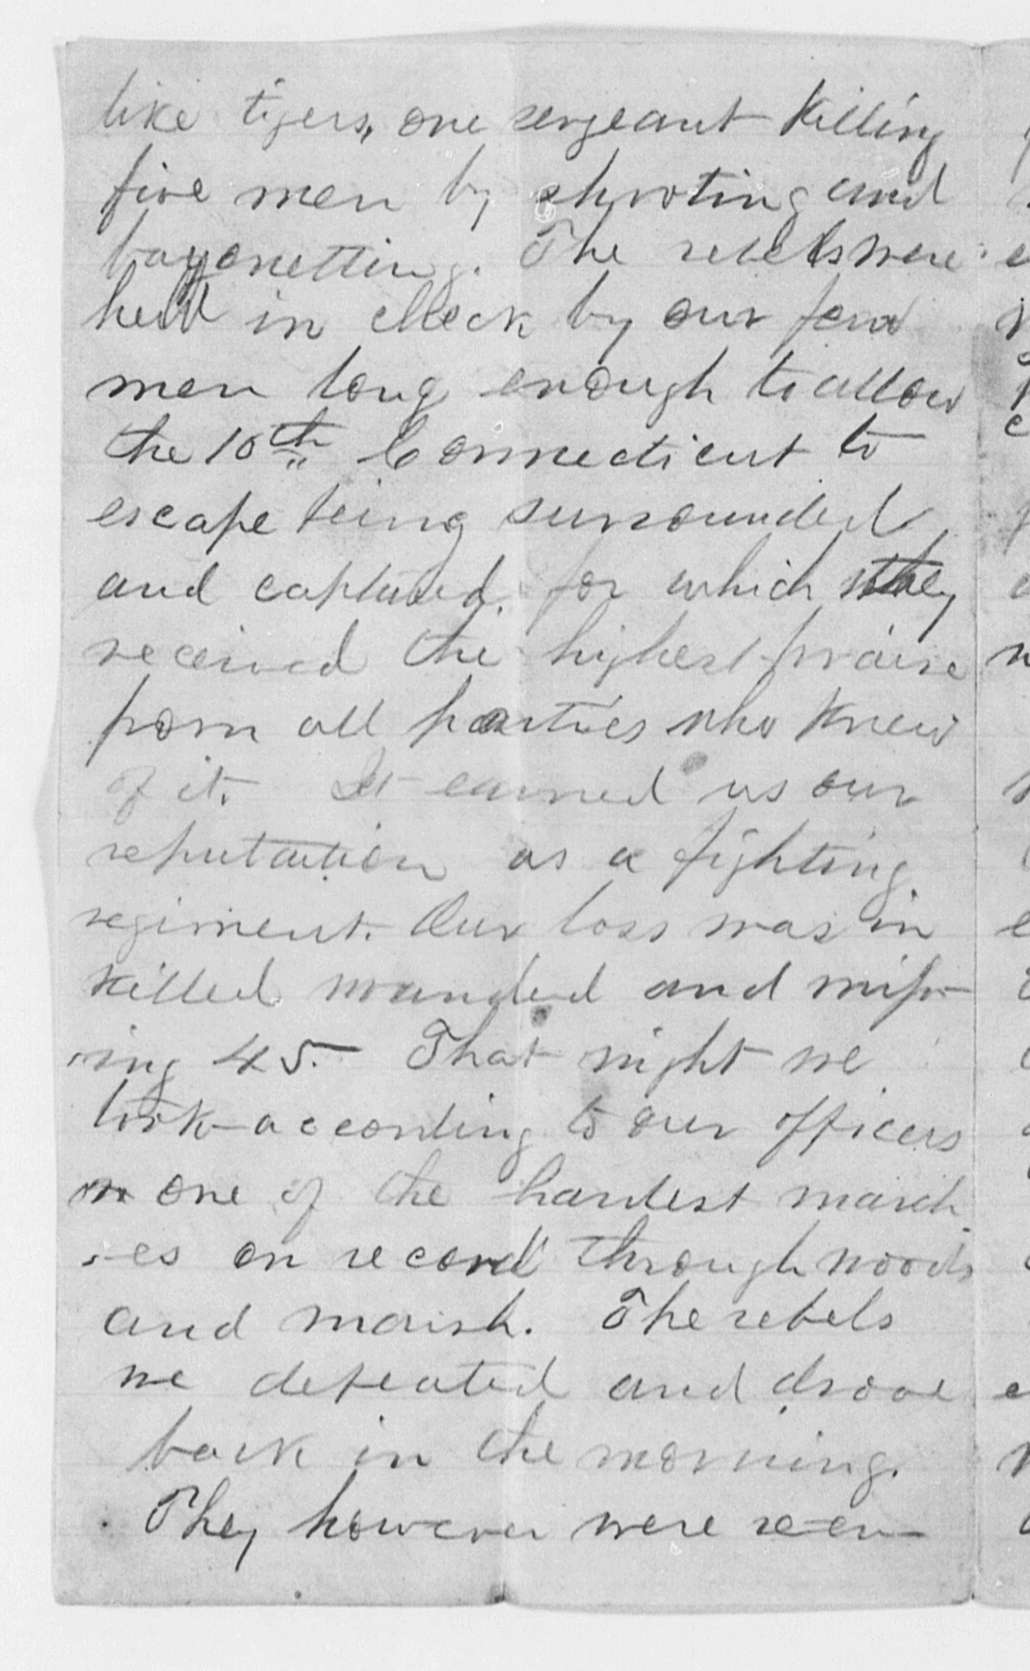 like tigers, one sergeant killing
five men by shooting and
bayonetting. The rebels were
held in check by our few
men long enough to allow
the 10th Connecticut to
escape being surrounded
and captured. for which they
received the highest praise
from all parties who knew
of it. It earned us our
reputation as a fighting
regiment. Our loss was in
killed wounded and miss-
ing 45. That night we
took according to our officers
one of the hardest march
-es on record through woods
and marsh. The rebels
we defeated and drove
back in the morning.
They however were re-en-